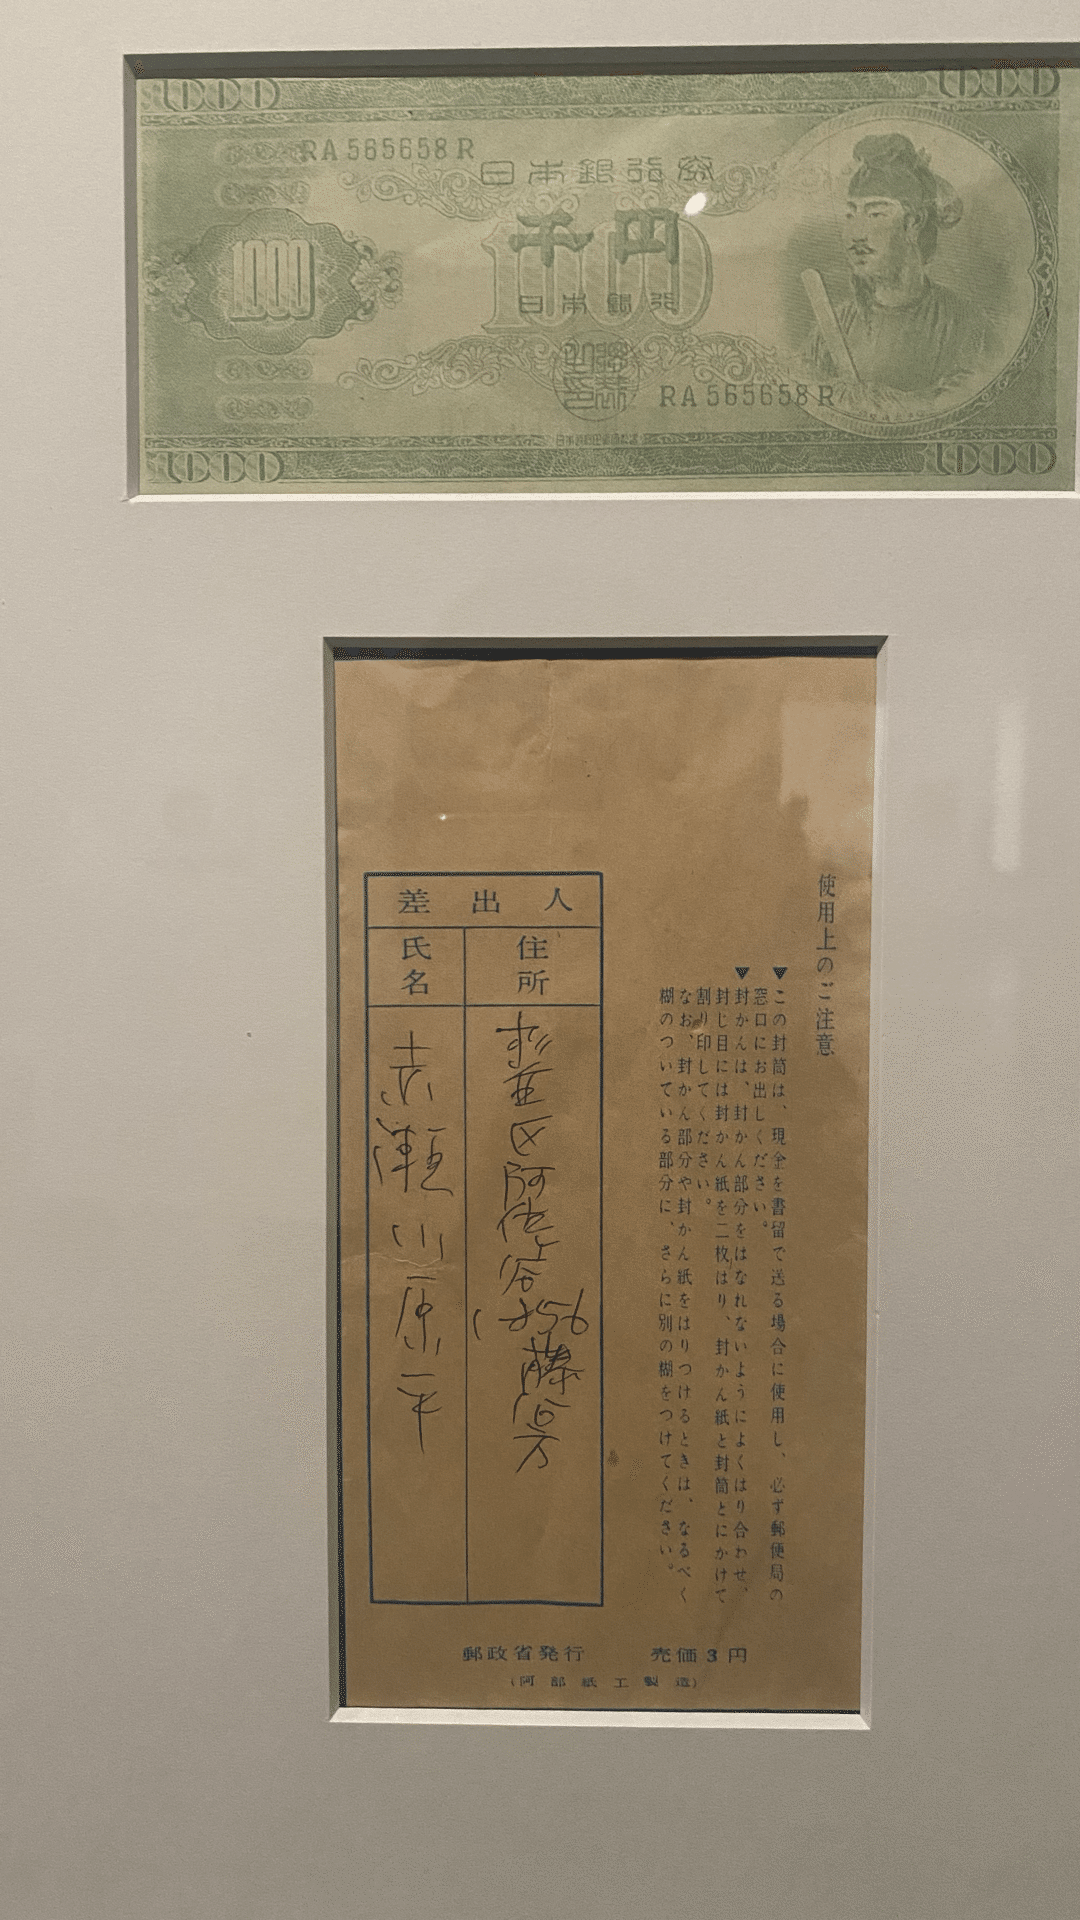 1000
1000
RA 565658 R
日本銀行券
千円
1000
1000
日本銀行
RA 565658 R
1000
1000
使用上のご注意
▼この封筒は、現金を書留で送る場合に使用し、必ず郵便局の
窓口にお出しください。
▼封かんは、封かん部分をはなれないようによくはり合わせ、
封じ目には封かん紙を二枚はり、封かん紙と封筒とにかけて
割り印してください。
なお、封かん部分や封かん紙をはりつけるときは、なるべく
糊のついている部分に、さらに別の糊をつけてください。
差出人
住所
杉並区阿佐ヶ谷
氏名
赤瀬川原平
郵政省発行 売価3円
(阿部紙工製造)